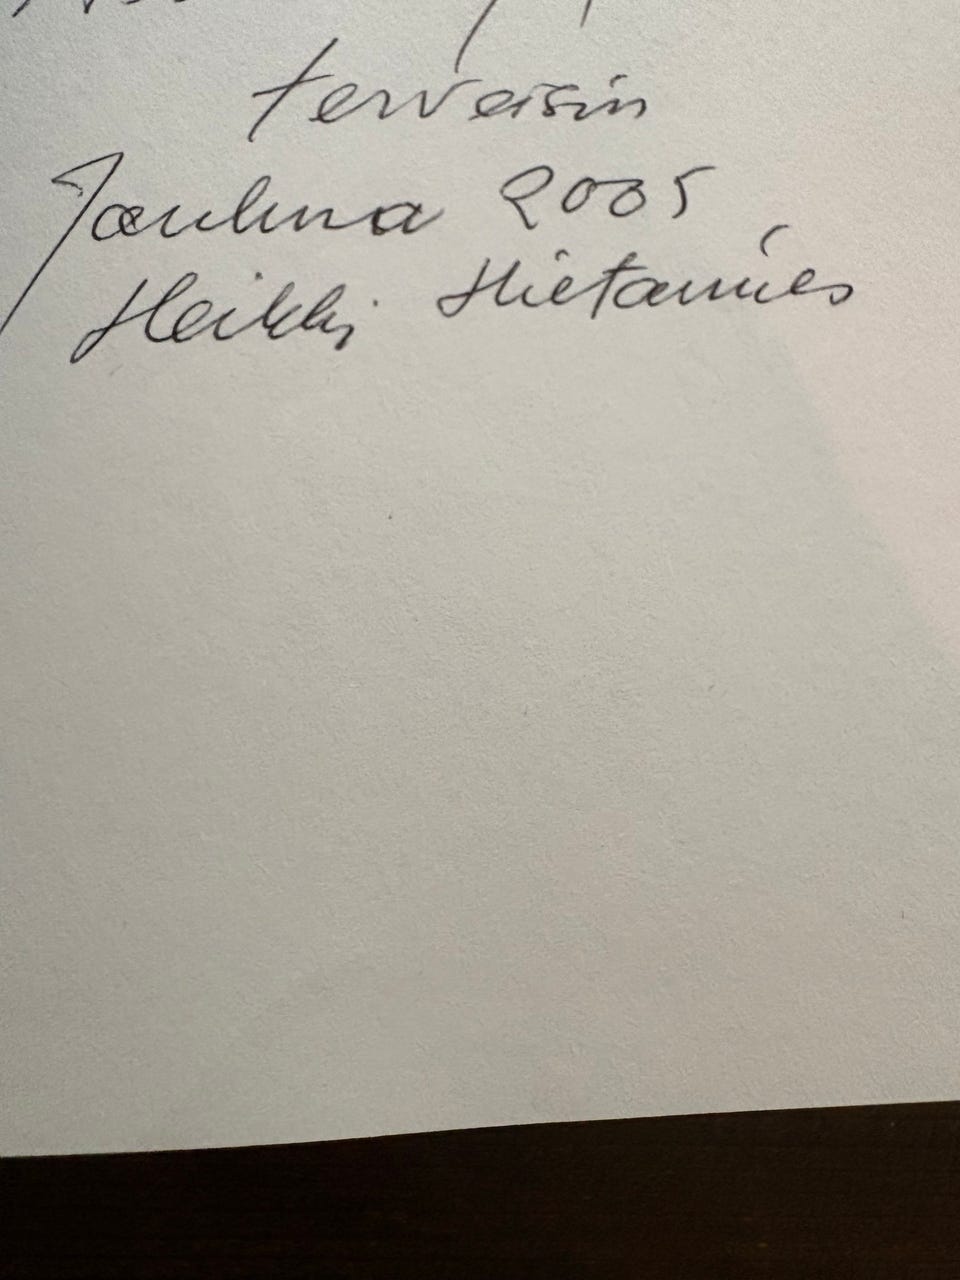 terveisin
Jouluna 2005
Heikki Hietamies